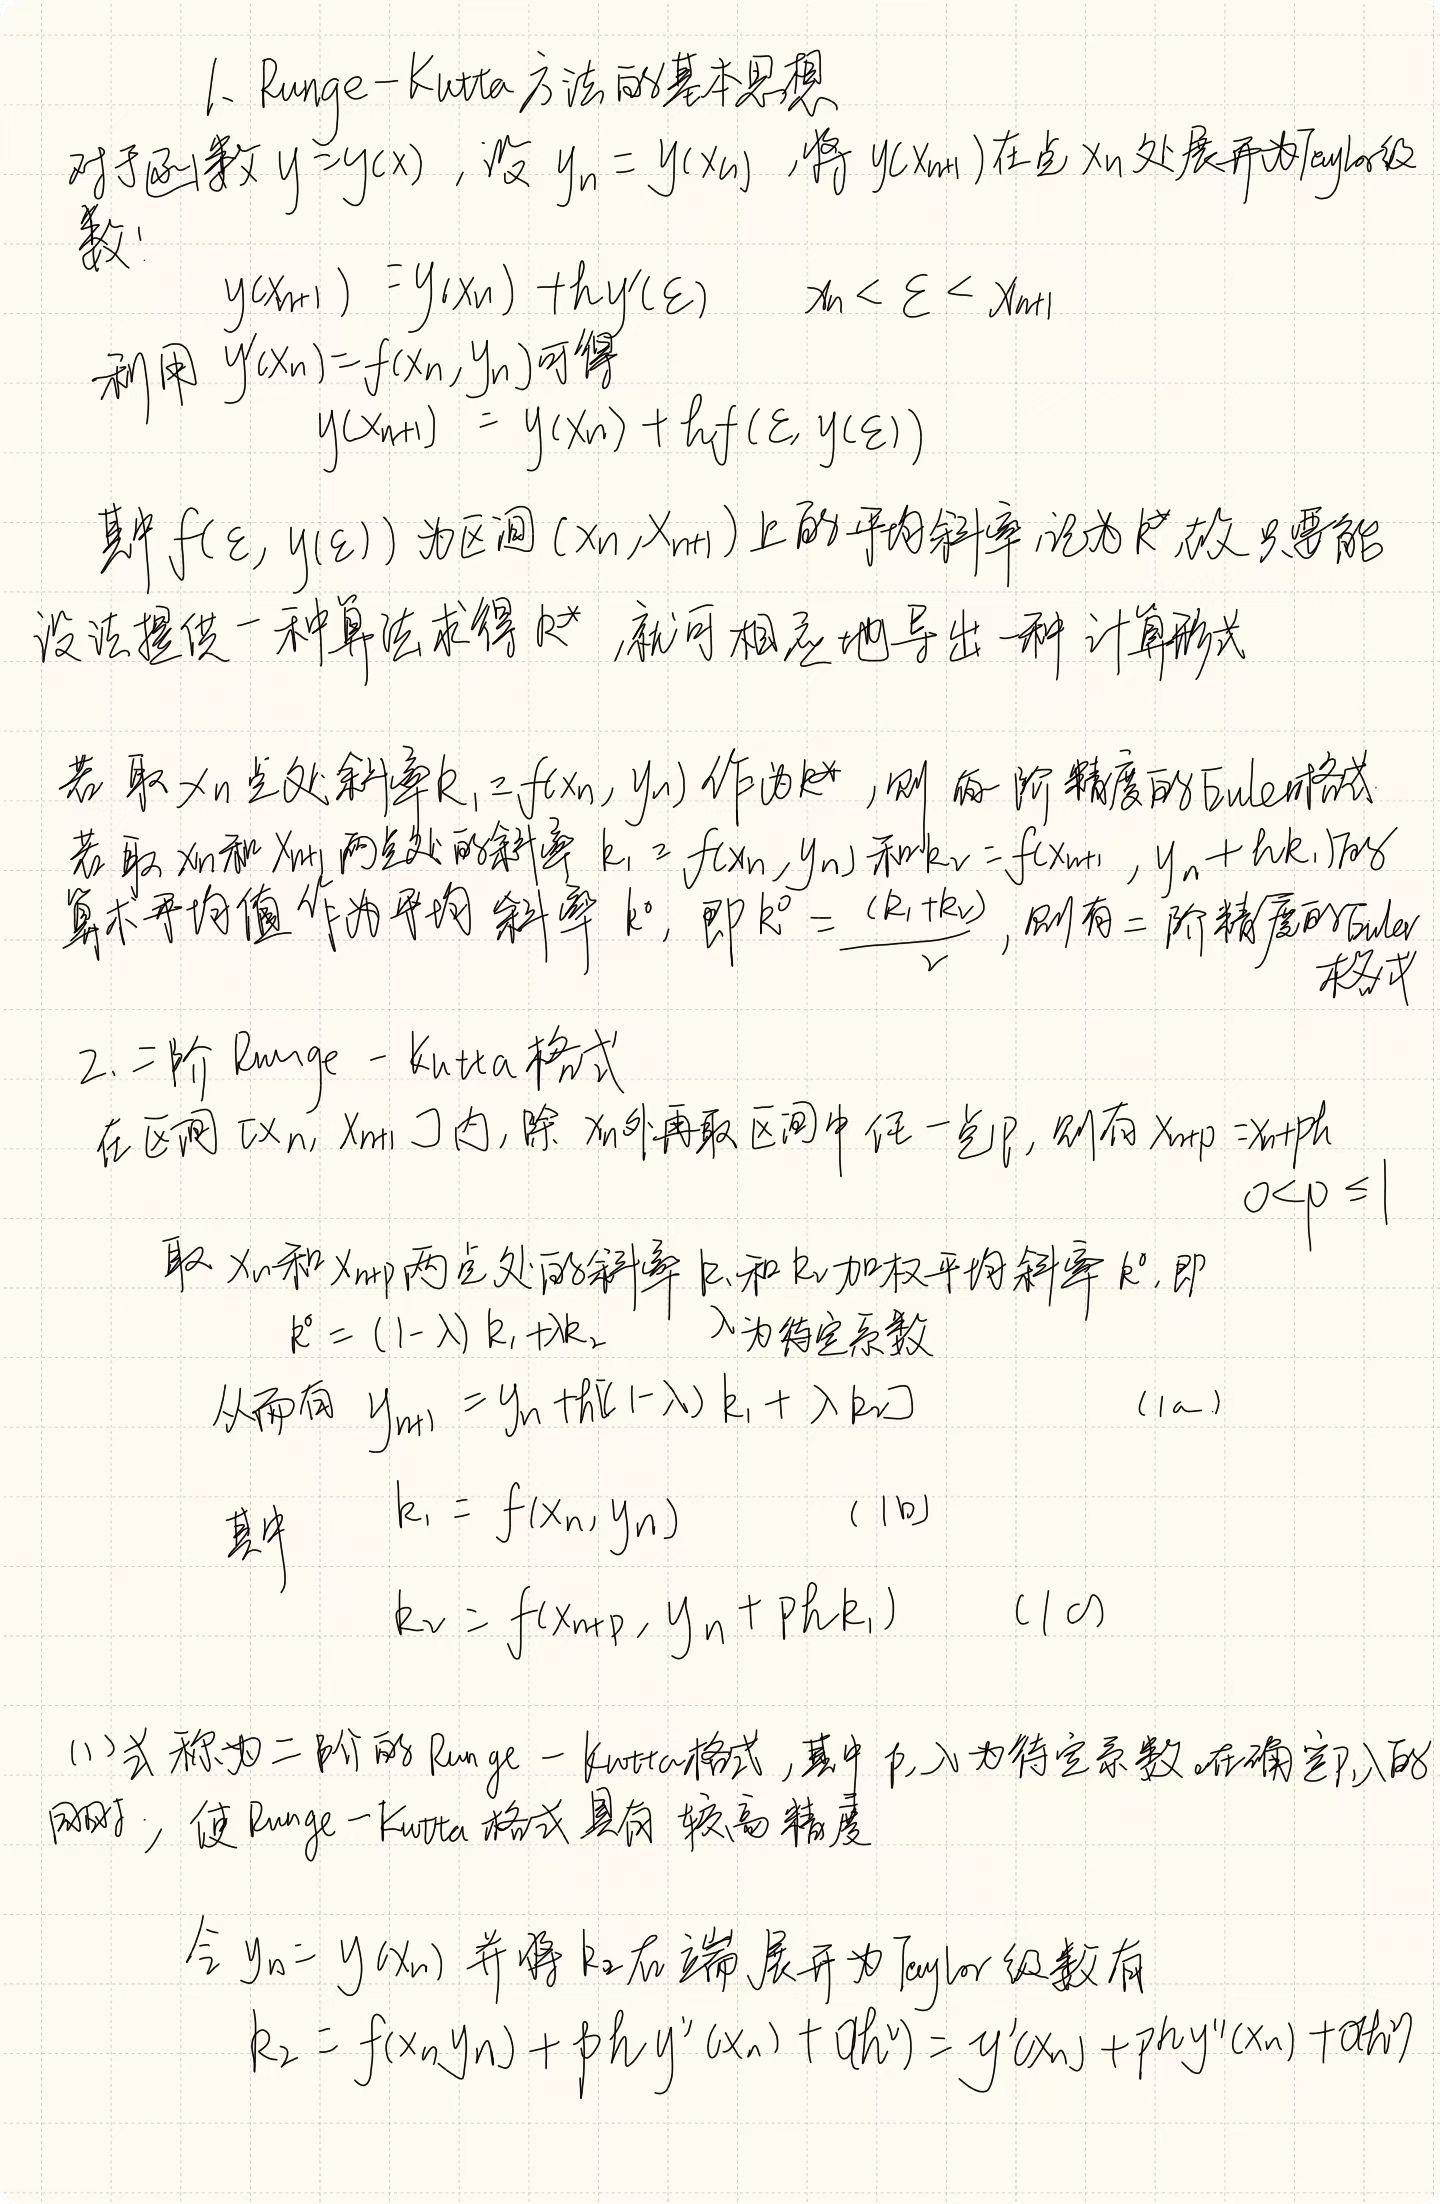 1、Runge-Kutta方法的基本思想
对于函数 y=y(x)，设 yn=y(xn)，将 y(xn+1)在点 xn 处展开为Taylor级
数：
y(xn+1) = y(xn) + hy'(ε)  xn < ε < xn+1
利用 y'(xn)=f(xn,yn)可得
y(xn+1) = y(xn) + hf(ε, y(ε))
其中 f(ε, y(ε)) 为区间 (xn, xn+1) 上的平均斜率，记为 k*，故只要能
设法提供一种算法求得 k*，就可相应地导出一种计算形式
若取 xn 点处斜率k1=f(xn, yn) 作为k*，则有一阶精度的Euler格式
若取 xn和 xn+1 两点处的斜率 k1=f(xn, yn) 和k2=f(xn+1, yn+hk1)的
算术平均值作为平均斜率 k*，即 k*=(k1+k2)/2，则有二阶精度的Euler
格式
2. 二阶 Runge-Kutta格式
在区间 [xn, xn+1] 内，除 xn外再取区间中任一点p，则有 xn+p=xn+ph
0<p≤1
取 xn和xn+p两点处的斜率 k1和 k2加权平均斜率 k*，即
k* = (1-λ) k1+λk2  λ为待定系数
从而有 yn+1 = yn+h[(1-λ) k1+λk2]  (1a)
k1 = f(xn, yn)  (1b)
其中
k2 = f(xn+p, yn+phk1)  (1c)
(1)式称为二阶的Runge-Kutta格式，其中 p,λ为待定系数。在确定p,λ的
同时，使Runge-Kutta格式具有较高精度
令 yn=y(xn) 并将 k2在端展开为Taylor级数有
k2 = f(xn yn) + phy'(xn) + O(h²) = y'(xn) + phy''(xn) + O(h²)